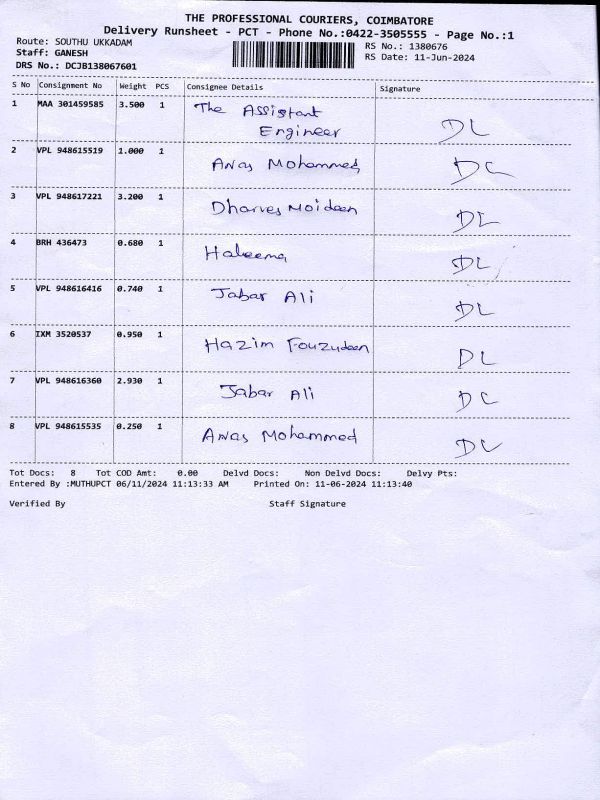 THE PROFESSIONAL COURIERS, COIMBATORE
Delivery Runsheet - PCT - Phone No.:0422-3505555 - Page No.:1
Route: SOUTHU UKKADAM
Staff: GANESH
DRS No.: DCJB138067601
RS No.: 1380676
RS Date: 11-Jun-2024
S No Consignment No Weight PCS Consignee Details Signature
1 MAA 301459585 3.500 1 The Assistant Engineer DL
2 VPL 948615519 1.000 1 Anas Mohammed DL
3 VPL 948617221 3.200 1 Dharves Moideen DL
4 BRH 436473 0.680 1 Haleema DL
5 VPL 948616416 0.740 1 Jabar Ali DL
6 IXM 3520537 0.950 1 Hazim Fouzudeen DL
7 VPL 948616360 2.930 1 Jabar Ali DL
8 VPL 948615535 0.250 1 Anas Mohammed DL
Tot Docs: 8 Tot COD Amt: 0.00 Delvd Docs: Non Delvd Docs: Delvy Pts:
Entered By :MUTHUPCT 06/11/2024 11:13:33 AM Printed On: 11-06-2024 11:13:40
Verified By Staff Signature